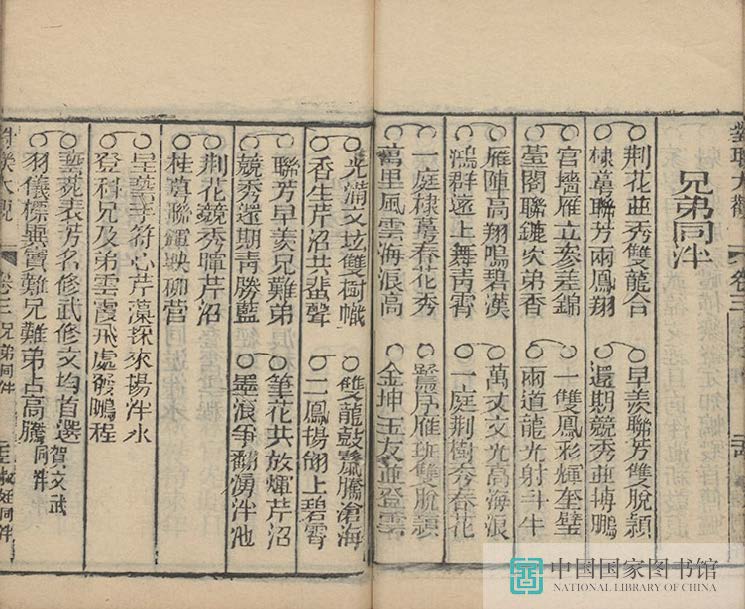 對聯大觀
卷三
兄弟同泮
荆花並秀雙龍合
棣萼聯芳兩鳳翔
早羨聯芳雙脫穎
還期競秀並摶鵬
宫墻雁立參差錦
臺閣聯鑣次弟香
一雙鳳彩輝奎璧
兩道龍光射斗牛
雁陣高翔鳴碧漢
鴻群遠上舞靑霄
萬丈文光高海浪
一庭荆樹秀春花
一庭棣萼春花秀
萬里風雲海浪高
鷺序雁班雙脫穎
金坤玉友並登雲
光滿文垓雙樹幟
香生芹沼共蜚聲
雙龍鼓鬣騰滄海
二鳳揚翎上碧霄
聯芳早羨兄難弟
競秀還期靑勝藍
筆花共放輝芹沼
墨浪爭翻湧泮池
荆花競秀暉芹沼
桂萼聯鑣映柳營
呈藝孚符心芹藻採來揚泮水
登科兄及弟雲霞飛處發鵬程
藝苑表芳名修武修文均首選
羽儀標異寶難兄難弟占高騰
賀文武同泮
對聯大觀
卷三
兄弟同泮
叔姪同泮
中国国家图书馆
NATIONAL LIBRARY OF CHINA